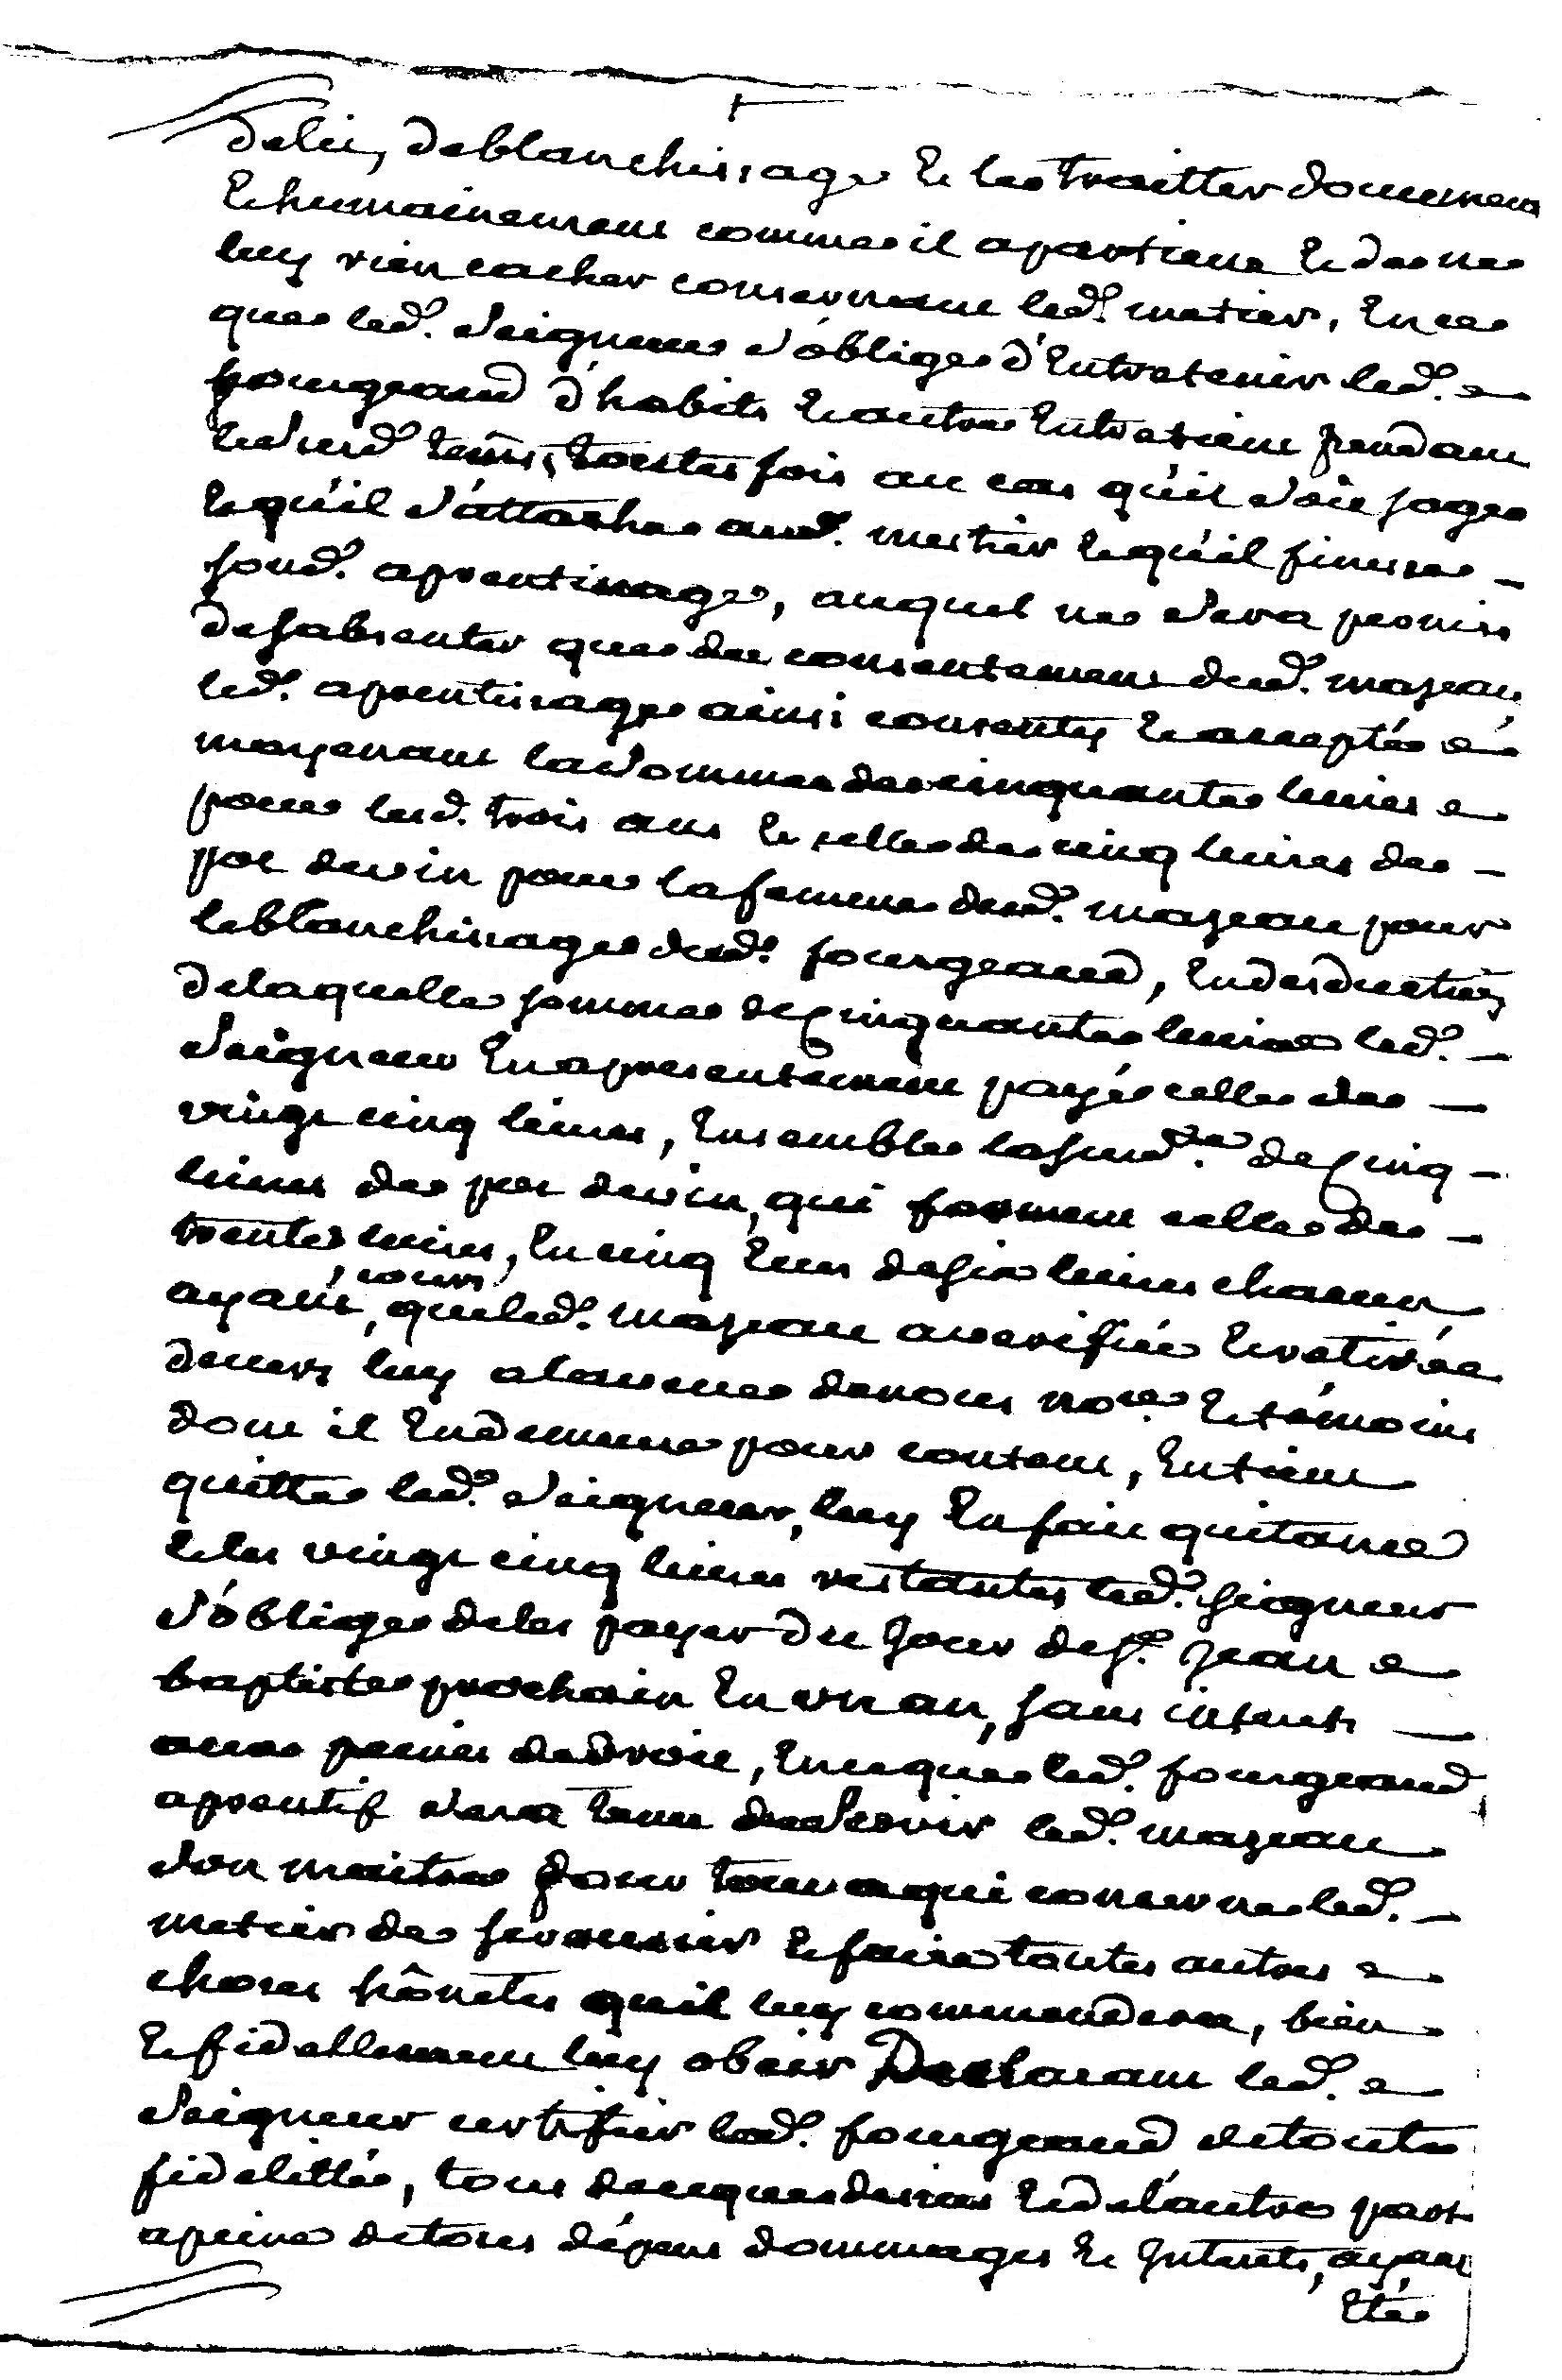 de lit, de blanchissage et le traitter doucement
et humainement comme il apartient et de ne
luy rien cacher concernant led. metier, en ce
que led. Seigneur s'oblige d'entretenir led.
fourgeaud d'habits et autre entretient pendant
le susd tems, toutes fois au cas qu'il soit sage
et qu'il s'attache aud. mestier et qu'il finisse
sond. aprentissage, auquel ne sera permis
de s'absenter que du consentement dud. mazeau
led. aprentissage ainsi consenty et accepté
moyenant la somme de cinquante livres
pour lesd. trois ans et celle de cinq livres de
pot de vin pour la femme dud. mazeau pour
le blanchissage dud. fourgeaud, en desduction
de laquelle somme de cinquante livres led.
Seigneur en a presentement payé celle de
vingt cinq livres, ensemble la susd.te de cinq
livres de pot de vin, qui forment celle de
trente livres, en cinq ecus de six livres chacun
ayant, cours, que led. mazeau a verifié et retirée
devers luy a la veue de nous no.re et témoins
dont il en demeure pour content, en tient
quitte led. Seigneur, luy en fait quitance
et les vingt cinq livres restantes led. seigneur
s'oblige de les payer du jour de s.t jean
baptiste prochain en un an, sans interets
autre peine de droit, en ce que led. fourgeaud
aprentif sera tenu de servir led. mazeau
son maitre pour tout ce qui concerne led.
metier de serrurier et faire toutes autres
choses hônetes qu'il luy commandera, bien
et fidellement luy obeir Declarant led.
Seigneur certifier led. fourgeaud de toute
fidelitté, tout ce que dessus et de l'autre part
a peine de tous dépens dommages et interets, ayant
été